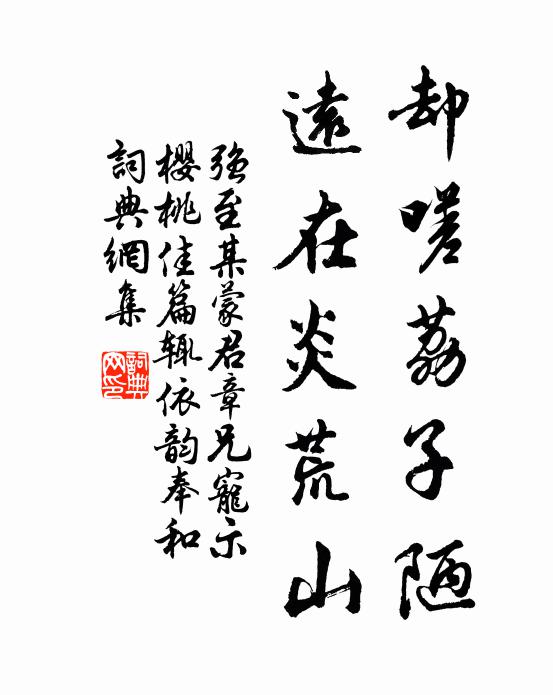 却嗟荔子陋
遠在炎荒山
強至某蒙君章兄寵示
櫻桃佳篇辄依韵奉和
詞典網集
詞典
网印